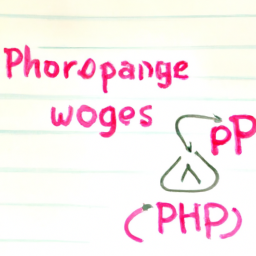 Phoropange
woges
pP
(PHP)